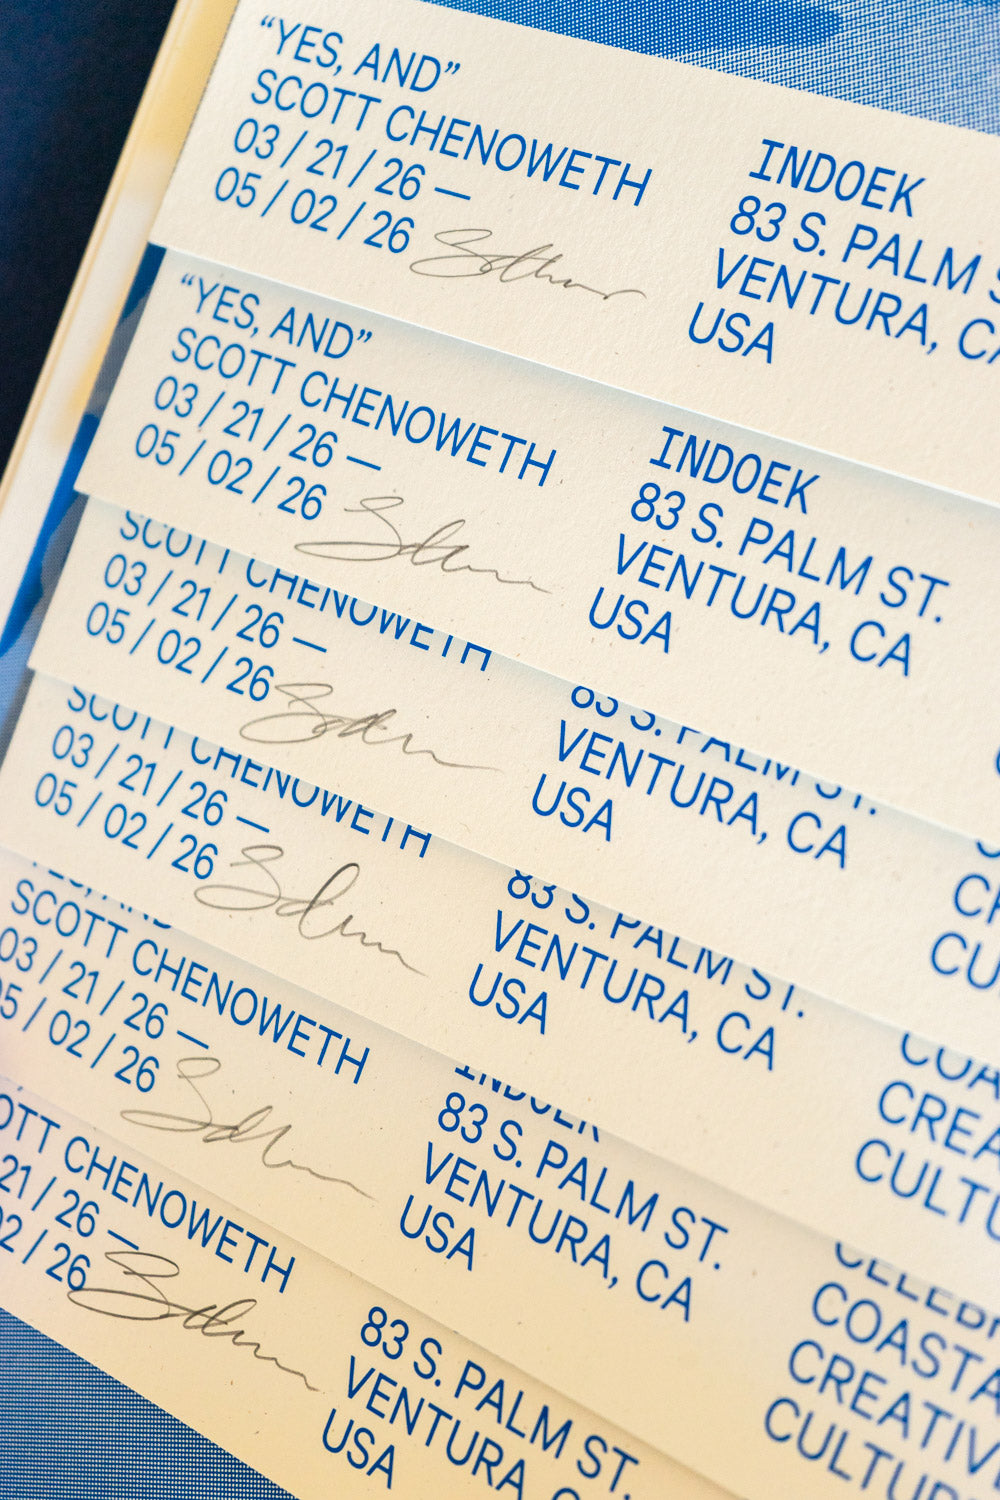 “YES, AND”
SCOTT CHENOWETH
03 / 21 / 26 —
05 / 02 / 26
INDOEK
83 S. PALM S
VENTURA, CA
USA
“YES, AND”
SCOTT CHENOWETH
03 / 21 / 26 —
05 / 02 / 26
INDOEK
83 S. PALM ST.
VENTURA, CA
USA
SCOTT CHENOWETH
03 / 21 / 26 —
05 / 02 / 26
83 S. PALM ST.
VENTURA, CA
USA
CU
SCOTT CHENOWETH
03 / 21 / 26 —
05 / 02 / 26
83 S. PALM ST.
VENTURA, CA
USA
COA
CREA
CULTU
SCOTT CHENOWETH
03 / 21 / 26 —
05 / 02 / 26
INDOEK
83 S. PALM ST.
VENTURA, CA
USA
CELEBR
COASTA
CREATIV
CULTUR
OTT CHENOWETH
21 / 26 —
02 / 26
83 S. PALM ST.
VENTURA, C
USA